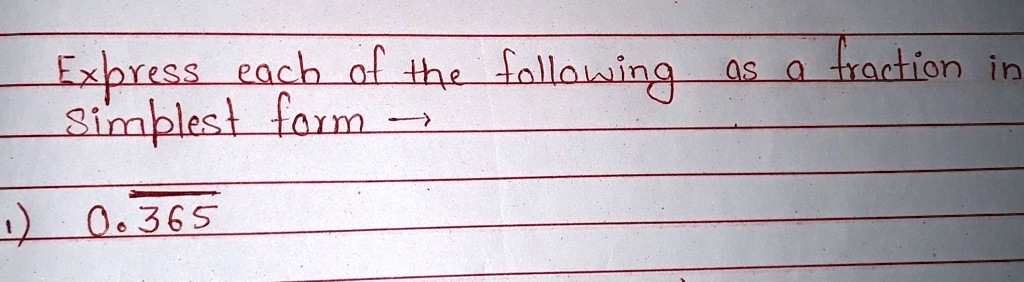 Express each of the following as a fraction in
simplest form →
1) 0.3̅6̅5̅